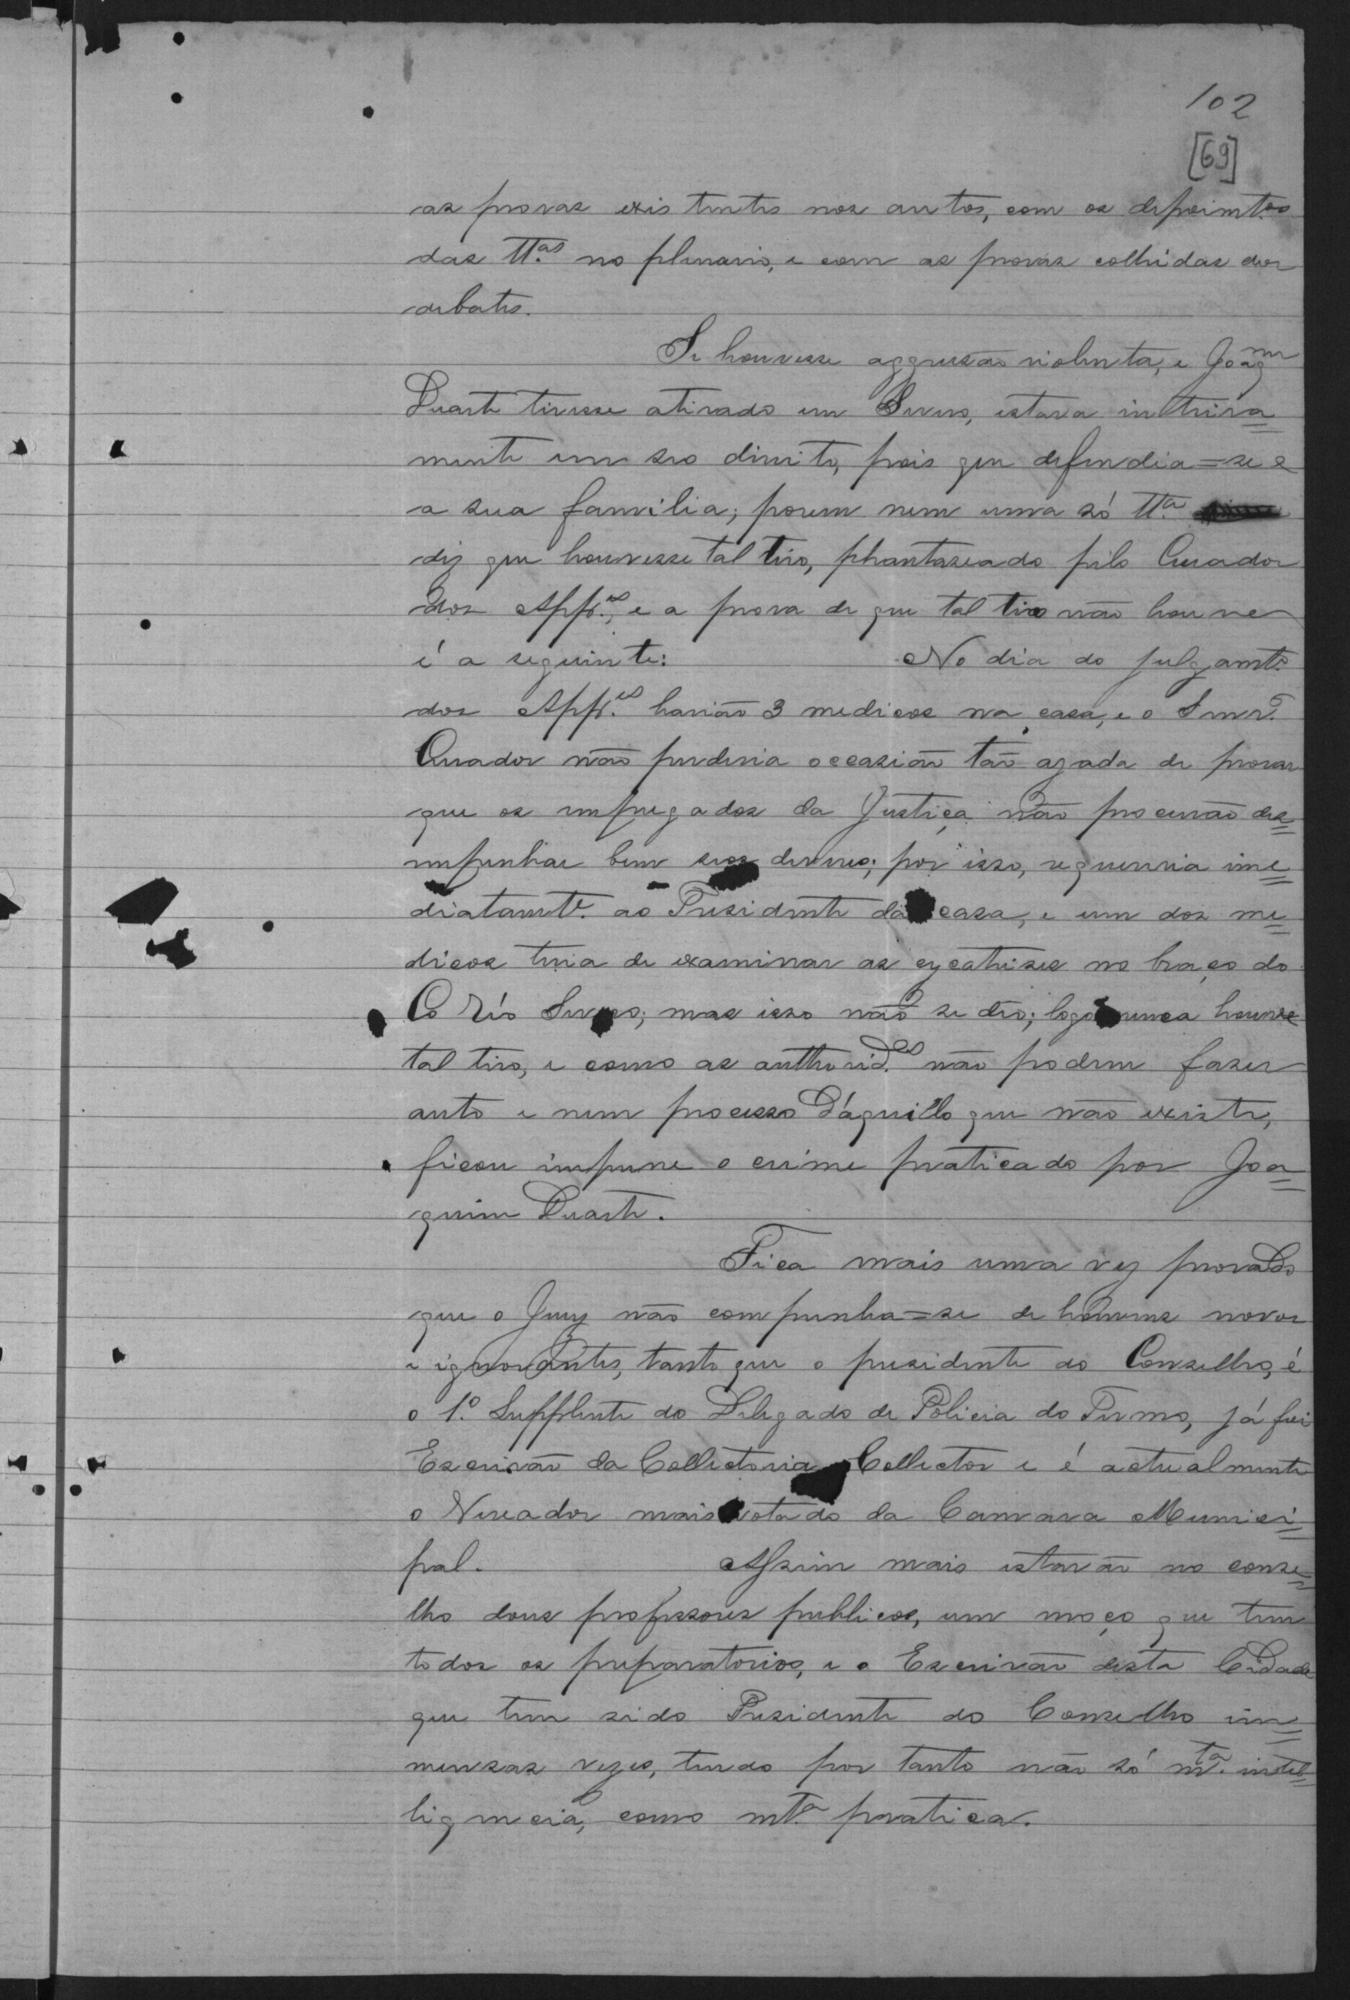 102
[69]
as provas existentes nos autos, com os depoimt.os
das TT.as no plenario, e com as provas colhidas dos
debates.
Se houvesse aggressão violenta, e Joaqm
Duarte tivesse atirado em Severo, estava inteira=
mente em seo direito, pois que defendia=se e
a sua familia; porem nem uma só TT.a
diz que houvesse tal tiro, phantaseado pelo Curador
dos App.es, e a prova de que tal tiro não houve
é a seguinte: No dia do julgamt.o
dos App.es havião 3 medicos na casa, e o Snnr.
Curador não perderia occasião tão azada de provar
que os empregados da Justiça não procurão des=
empenhar bem seos deveres; por isso, requereria ime=
diatamt.e ao Presidente da casa, e um dos me=
dicos teria de examinar as cycatrises no braço do
Co Réo Severo; mas isso não se deo; logo nunca houve
tal tiro, e como as authorid.es não podem faser
auto e nem processo d'áquillo que não existe,
ficou impune o crime praticado por Joa=
quim Duarte.
Fica mais uma vez provado
que o Jury não compunha=se de homens novos
e ignorantes, tanto que o presidente do Conselho, é
o 1.o Supplente do Delegado de Policia do Termo, já foi
Escrivão da Collectoria, Collector e é actualmente
o Vereador mais votado da Camara Munici=
pal. Assim mais estavão no conse=
lho dous professores publicos, um moço que tem
todos os preparatorios, e o Escrivão desta Cidade
que tem sido Presidente do Conselho im=
mensas vezes, tendo por tanto não só m.ta intel=
ligencia, como mt.a pratica.